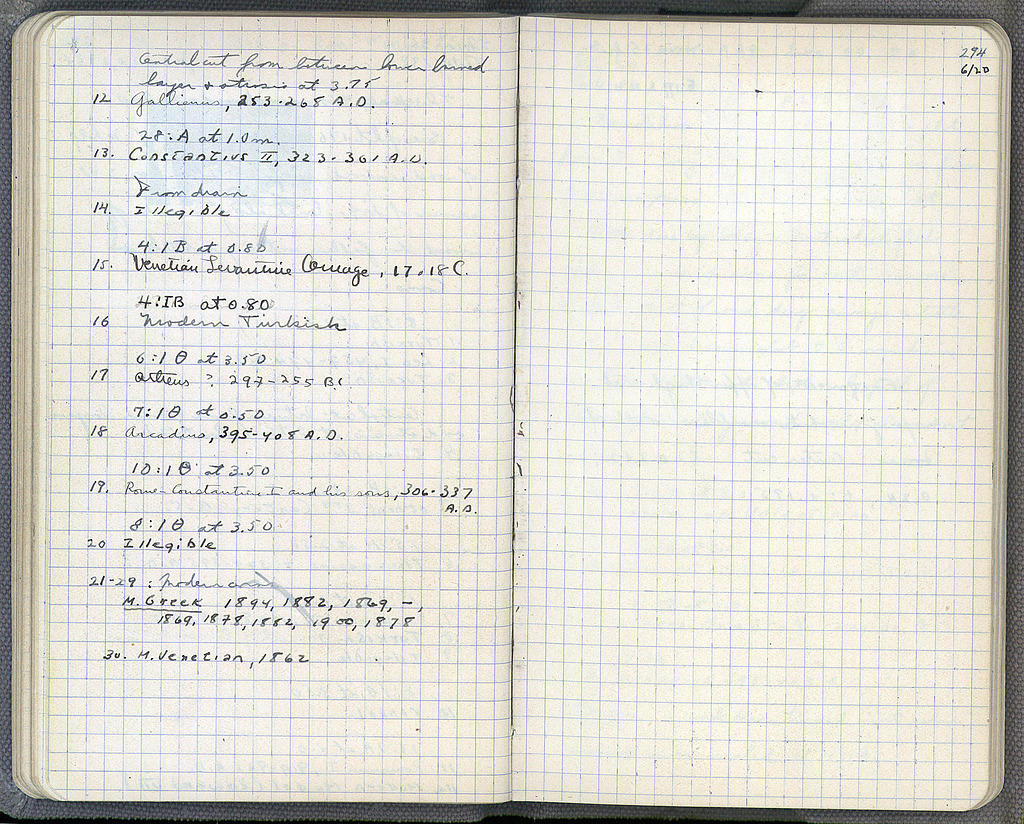 Central cut from between lower burned
layer & stosis at 3.75
12 Gallienus, 253-268 A.D.
28:A at 1.0m.
13. Constantius II, 323-361 A.D.
From drain
14. Illegible
4:IB at 0.80
15. Venetian Levantine Coinage, 17-18 C.
4:IB at 0.80
16 Modern Turkish
6:1Θ at 3.50
17 Athens ? 297-255 BC
7:1Θ at 0.50
18 Arcadius, 395-408 A.D.
10:1Θ at 3.50
19. Rome-Constantine I and his sons, 306-337
A.D.
8:1Θ at 3.50
20 Illegible
21-29: Modern coins
M. Greek 1894, 1882, 1869, -,
1869, 1878, 1882, 1900, 1878
30. M. Venetian, 1862
294
6/20